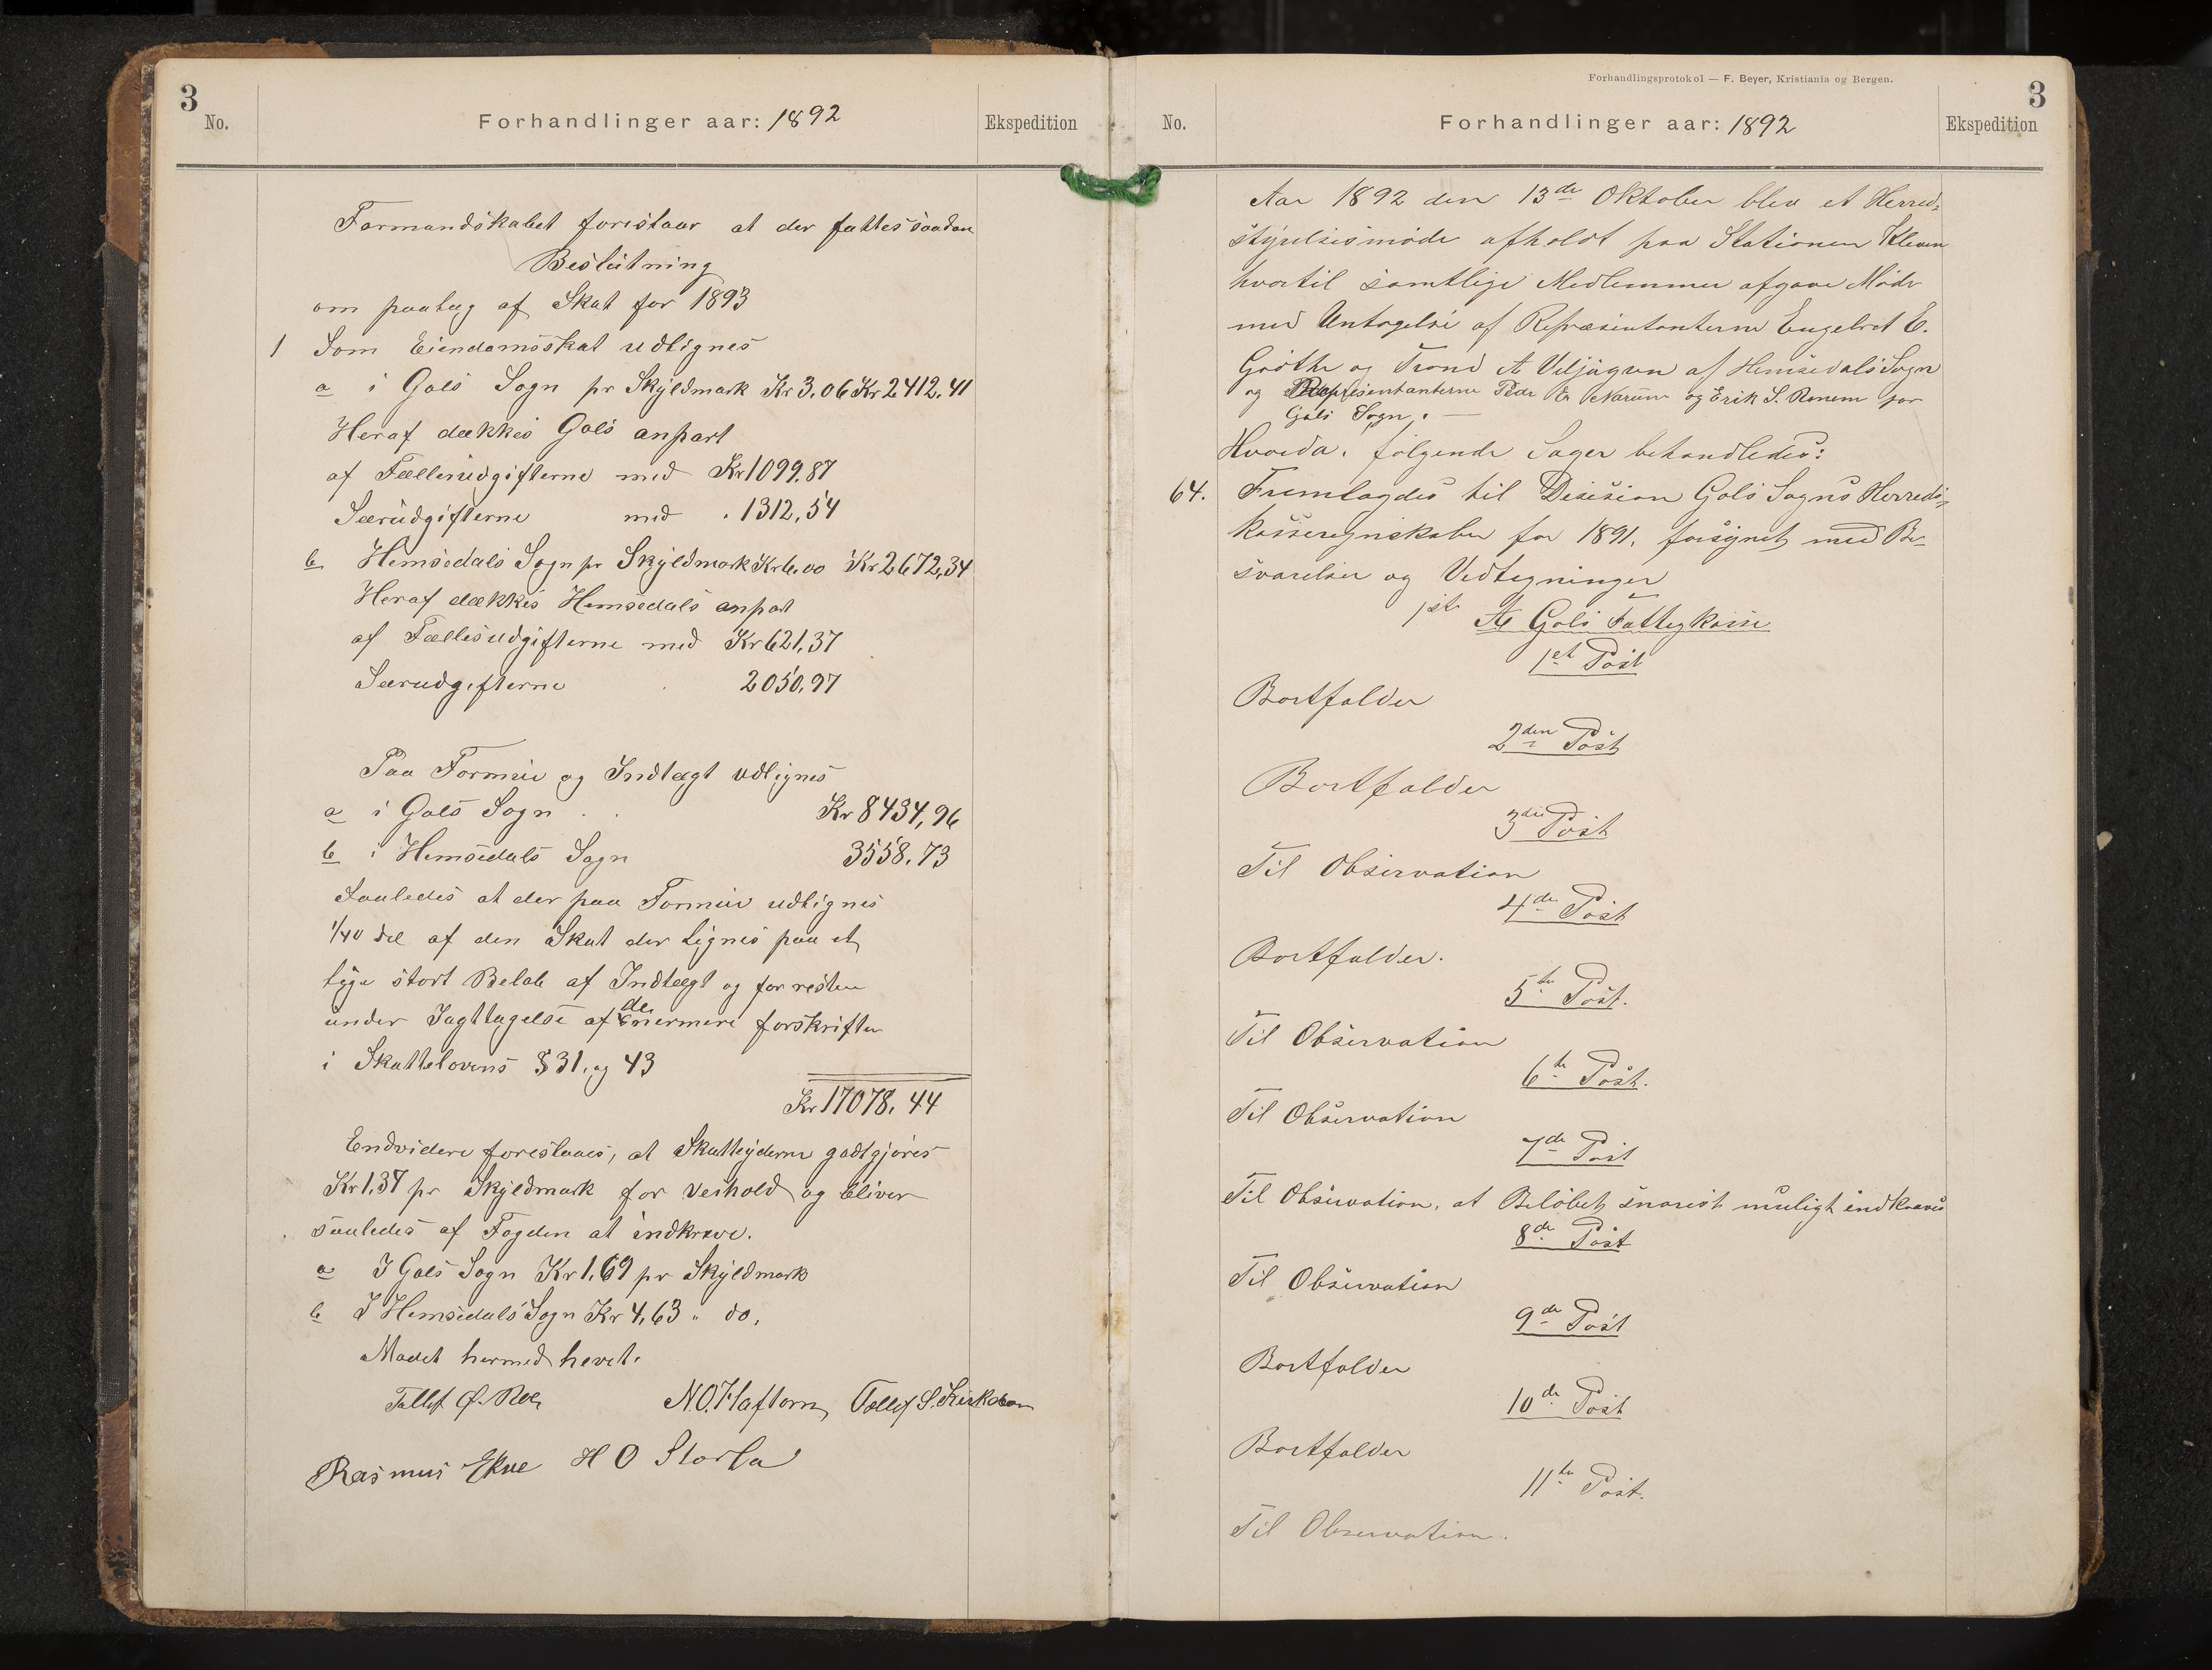 3
No.
Forhandlinger aar: 1892
Ekspedition
Formandskabet foreslaar at der fattes saadan
Beslutning
om paalæg af Skat for 1893
1 Som Eiendomsskat udlignes
a i Gols Sogn pr Skyldmark Kr 3,06 Kr 2412,41
Heraf dækkes Gols anpart
af Fællesudgifterne med Kr 1099,87
Særudgifterne med . 1312,54
b Hemsedals Sogn pr Skyldmark Kr 6.00 Kr 2672,34
Heraf dækkes Hemsedals anpat
af Fællesudgifterne med Kr 621,37
Særudgifterne 2050,97
Paa Formue og Indtægt udlignes
a i Gols Sogn . . Kr 8434,96
b i Hemsedals Sogn 3558,73
Saaledes at der paa Formue udlignes
1/40 del af den Skat der lignes paa et
lige stort Beløb af Indtægt og for resten
under Iagttagelse af de nærmere forskrifter
i Skattelovens § 31, og 43
Kr 17078,44
Endvidere foreslaaes, at Skatteyderne godtgjøres
Kr 1,37 pr Skyldmark for Veihold og bliver
saaledes af Fogden at indkræve.
a I Gols Sogn Kr 1,69 pr Skyldmark
b I Hemsedals Sogn Kr 4,63 " do,
Mødet hermed hevet.
Tollef Ø. Roe N.O. Haftorn Tollef S. Kirkebøn
Rasmus Ekre H O Storla
Forhandlingsprotokol — F. Beyer, Kristiania og Bergen.
3
No.
Forhandlinger aar: 1892
Ekspedition
Aar 1892 den 13de Oktober blev et Herred-
styrelsesmøde afholdt paa Stationen Kleven
hvortil samtlige Medlemmer afgave Møde
med Untagelse af Repræsentanterne Engebret E.
Grøthe og Trond A Viljugren af Hemsedals Sogn
og Repræsentanterne Peder E Narum og Erik S. Renem for
Gols Sogn. —
Hvorda. følgende Sager behandledes:
64. Fremlagdes til Desision Gols Sogns Herreds-
kasseregnskaber for 1891, forsynet med Be-
svarelser og Vedtegninger
1ste A Gols Fattigkasse
1et Post
Bortfalder
2den Post
Bortfalder
3die Post
Til Observation
4de Post
Bortfalder.
5te Post.
Til Observation
6te Post.
Til Observation
7de Post
Til Observation, at Beløbet snarest muligt indkræves
8de Post
Til Observation
9de Post
Bortfalder
10de Post
Bortfalder
11te Post.
Til Observation.